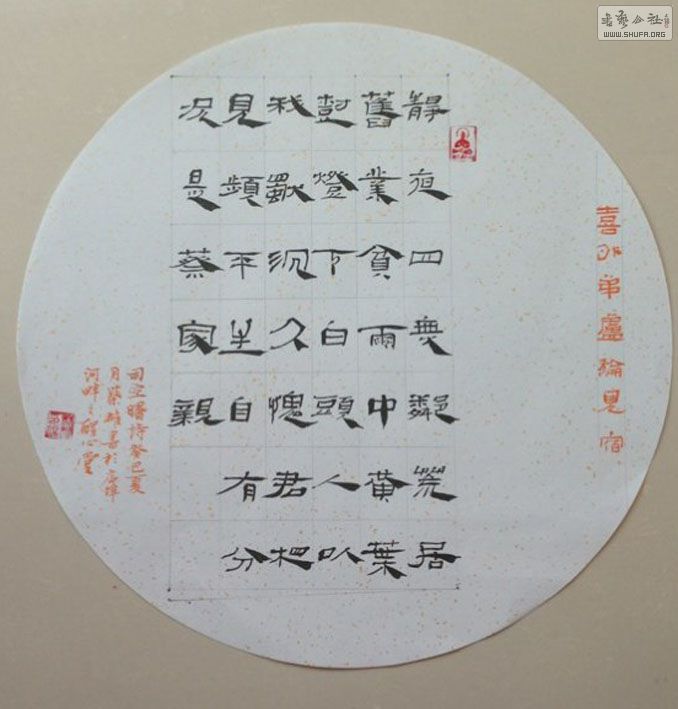 喜外弟盧綸見宿
靜夜四無鄰荒居
舊業貧雨中黃葉
樹燈下白頭人以
我獨沉久愧君相
見頻平生自有分
况是蔡家親
司空曙詩癸巳亥
月蔡雄書於
河畔之心堂
书艺公社
WWW.SHUFA.ORG